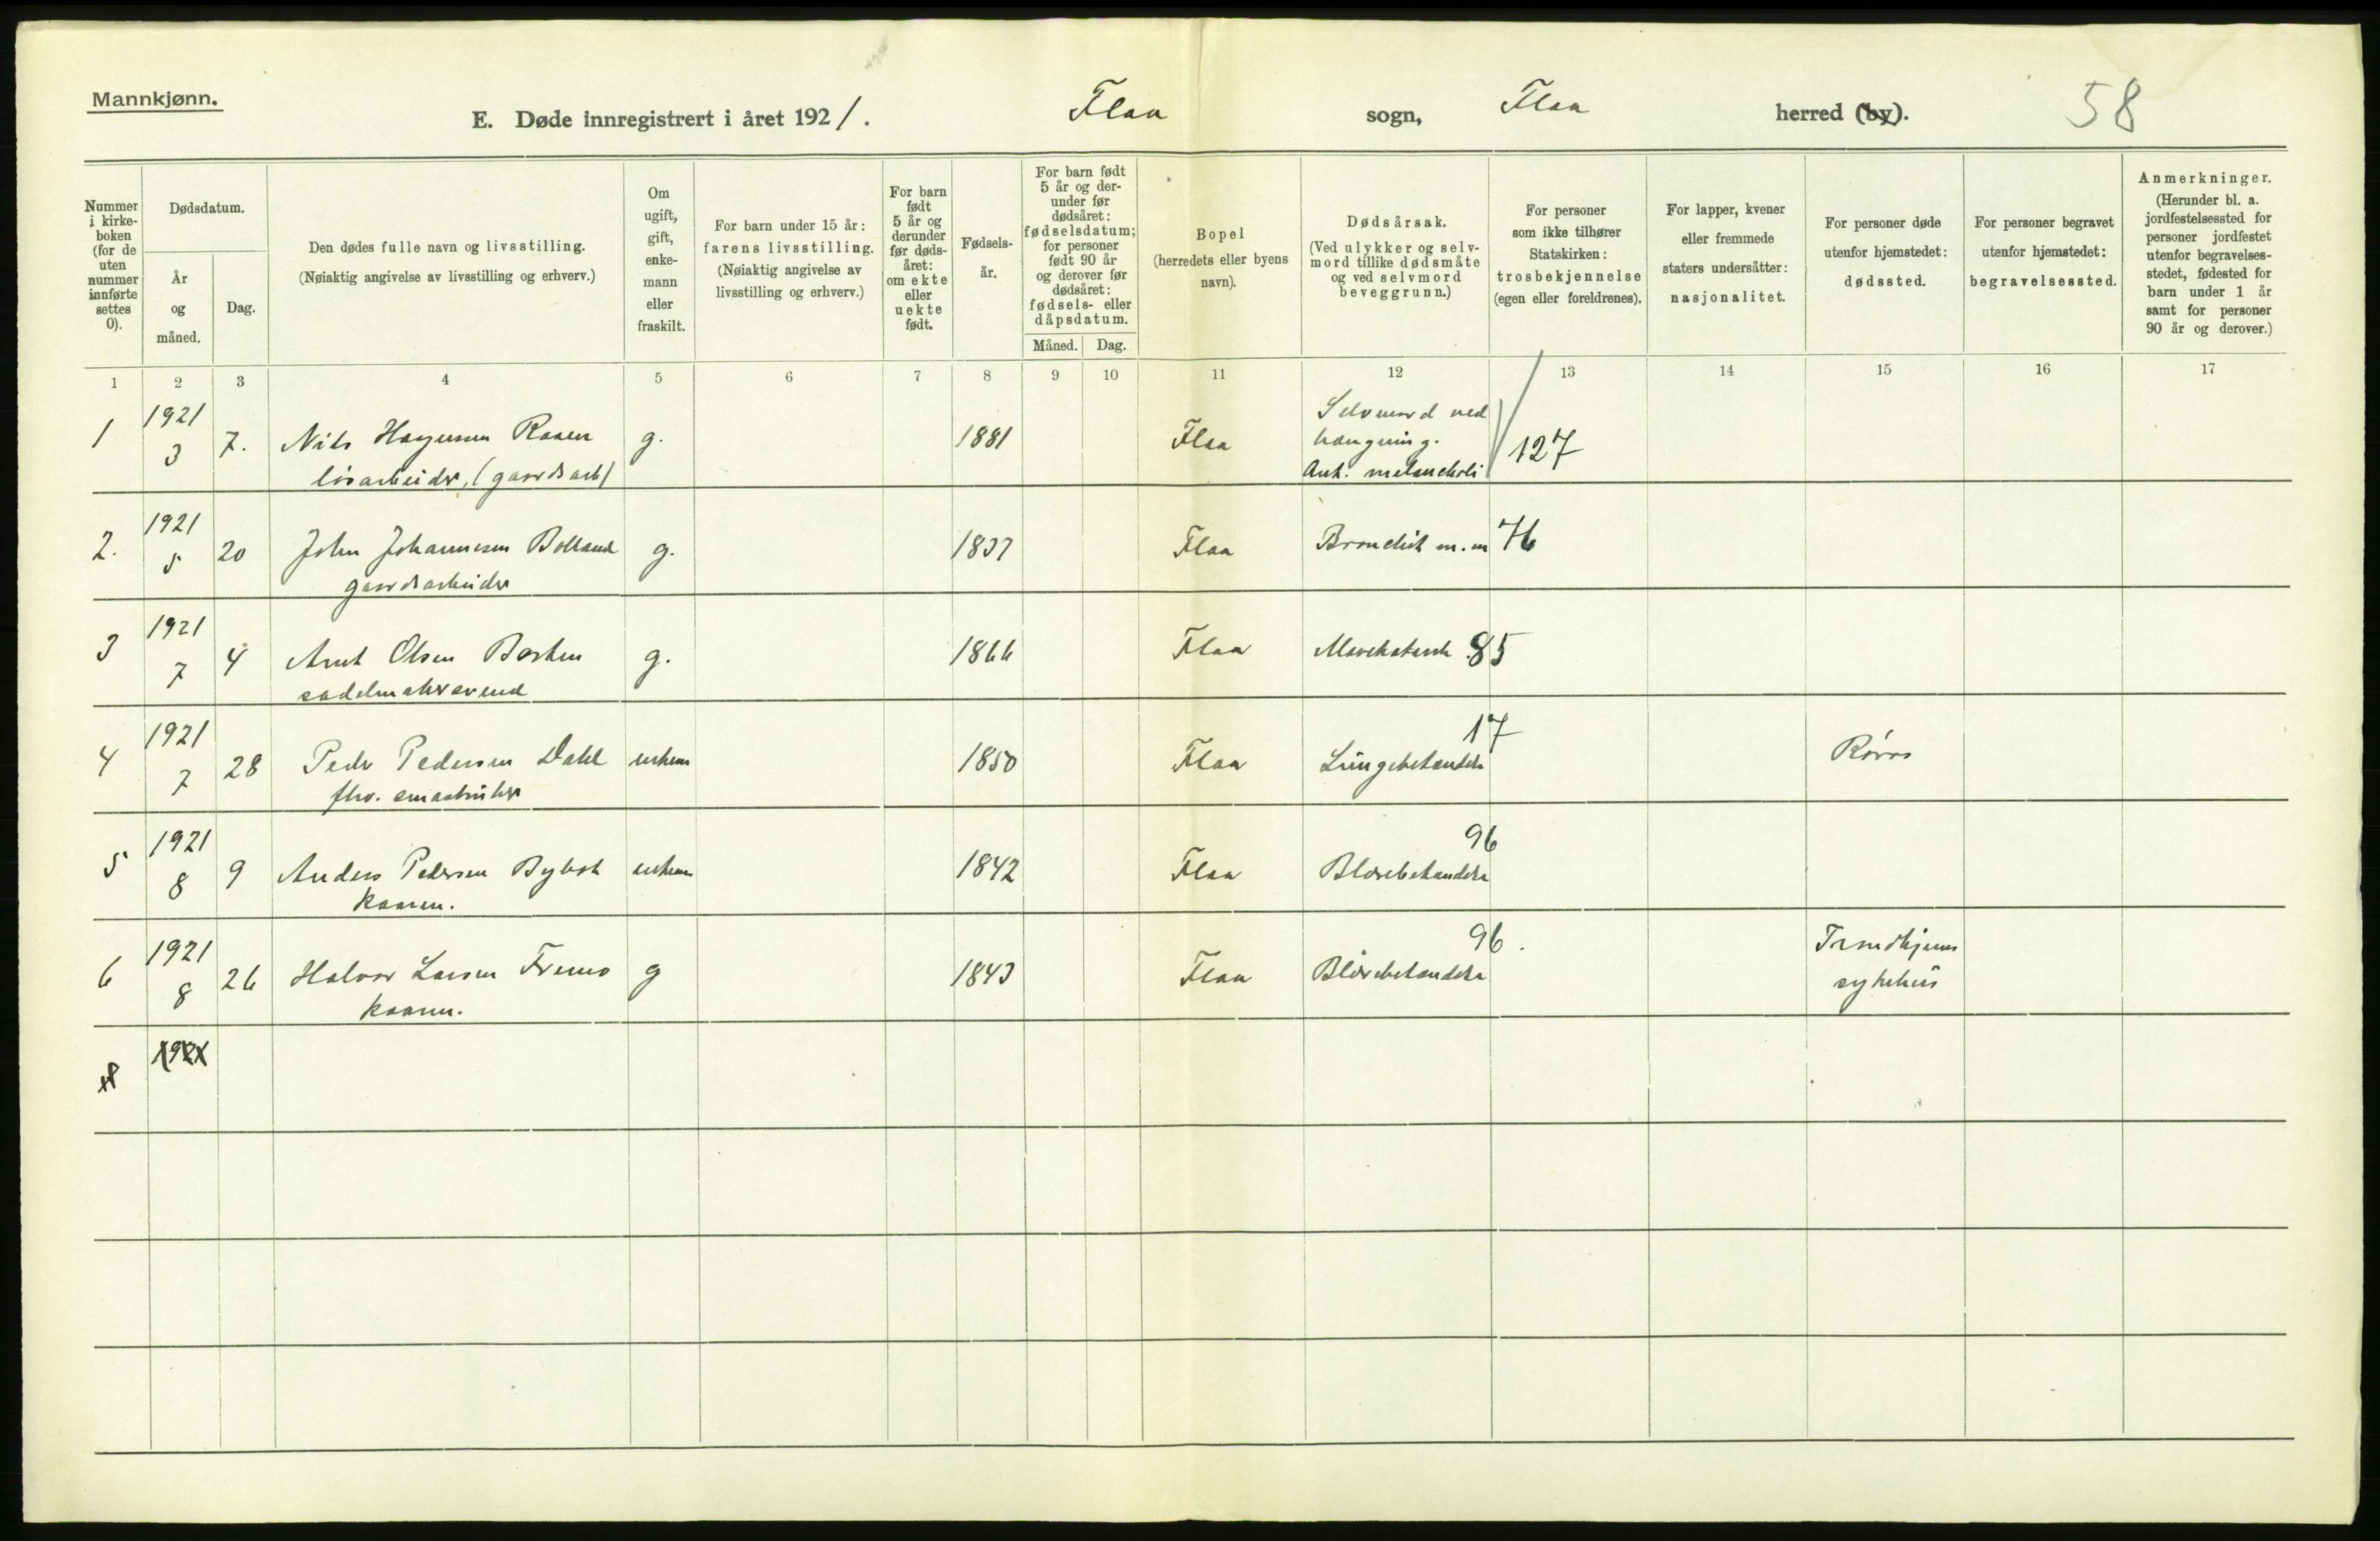 Mannkjønn.
E. Døde innregistrert i året 1921. Flaa sogn, Flaa herred (by). 58
Nummer i kirkeboken (for de uten nummer innførte settes 0).
Dødsdatum.
År og måned.
Dag.
Den dødes fulle navn og livsstilling.
(Nøiaktig angivelse av livsstilling og erhverv.)
Om ugift, gift, enkemann eller fraskilt.
For barn under 15 år: farens livsstilling. (Nøiaktig angivelse av livsstilling og erhverv.)
For barn født 5 år og derunder før dødsåret: om ekte eller uekte født.
Fødselsår.
For barn født 5 år og derunder før dødsåret: fødselsdatum; for personer født 90 år og derover før dødsåret: fødsels- eller dåpsdatum.
Måned. Dag.
Bopel (herredets eller byens navn).
Dødsårsak. (Ved ulykker og selvmord tillike dødsmåte og ved selvmord beveggrunn.)
For personer som ikke tilhører Statskirken: trosbekjennelse (egen eller foreldrenes).
For lapper, kvener eller fremmede staters undersåtter: nasjonalitet.
For personer døde utenfor hjemstedet: dødssted.
For personer begravet utenfor hjemstedet: begravelsessted.
Anmerkninger. (Herunder bl. a. jordfestelsessted for personer jordfestet utenfor begravelsesstedet, fødested for barn under 1 år samt for personer 90 år og derover.)
1 2 3 4 5 6 7 8 9 10 11 12 13 14 15 16 17
1 1921 3 7. Nils Haagensen Raaen g. 1881 Flaa Selvmord ved hængning. Ant. melankoli 127
løsarbeider, (gaardsarb)
2. 1921 5 20 John Johannesen Bolland g. 1837 Flaa Bronchit m.m 76
gaardsarbeider
3 1921 7 4 Arnt Olsen Borten g. 1866 Flaa Mavekatarrh 85
sadelmakersvend
4 1921 7 28 Peder Pedersen Dahl enkem 1850 Flaa Lungebetændelse 17 Røros
fhv. smaabruker
5 1921 8 9 Anders Pedersen enkem 1842 Flaa Blærebetændelse 96
kaarm.
6 1921 8 26 Halvor Larsen Fremo g 1843 Flaa Blærebetændelse 96. Trondhjems sykehus
kaarm.
1921